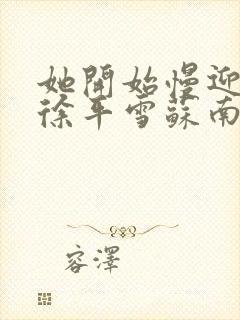 她開始慢迎
徐平雪蘇南
容澤